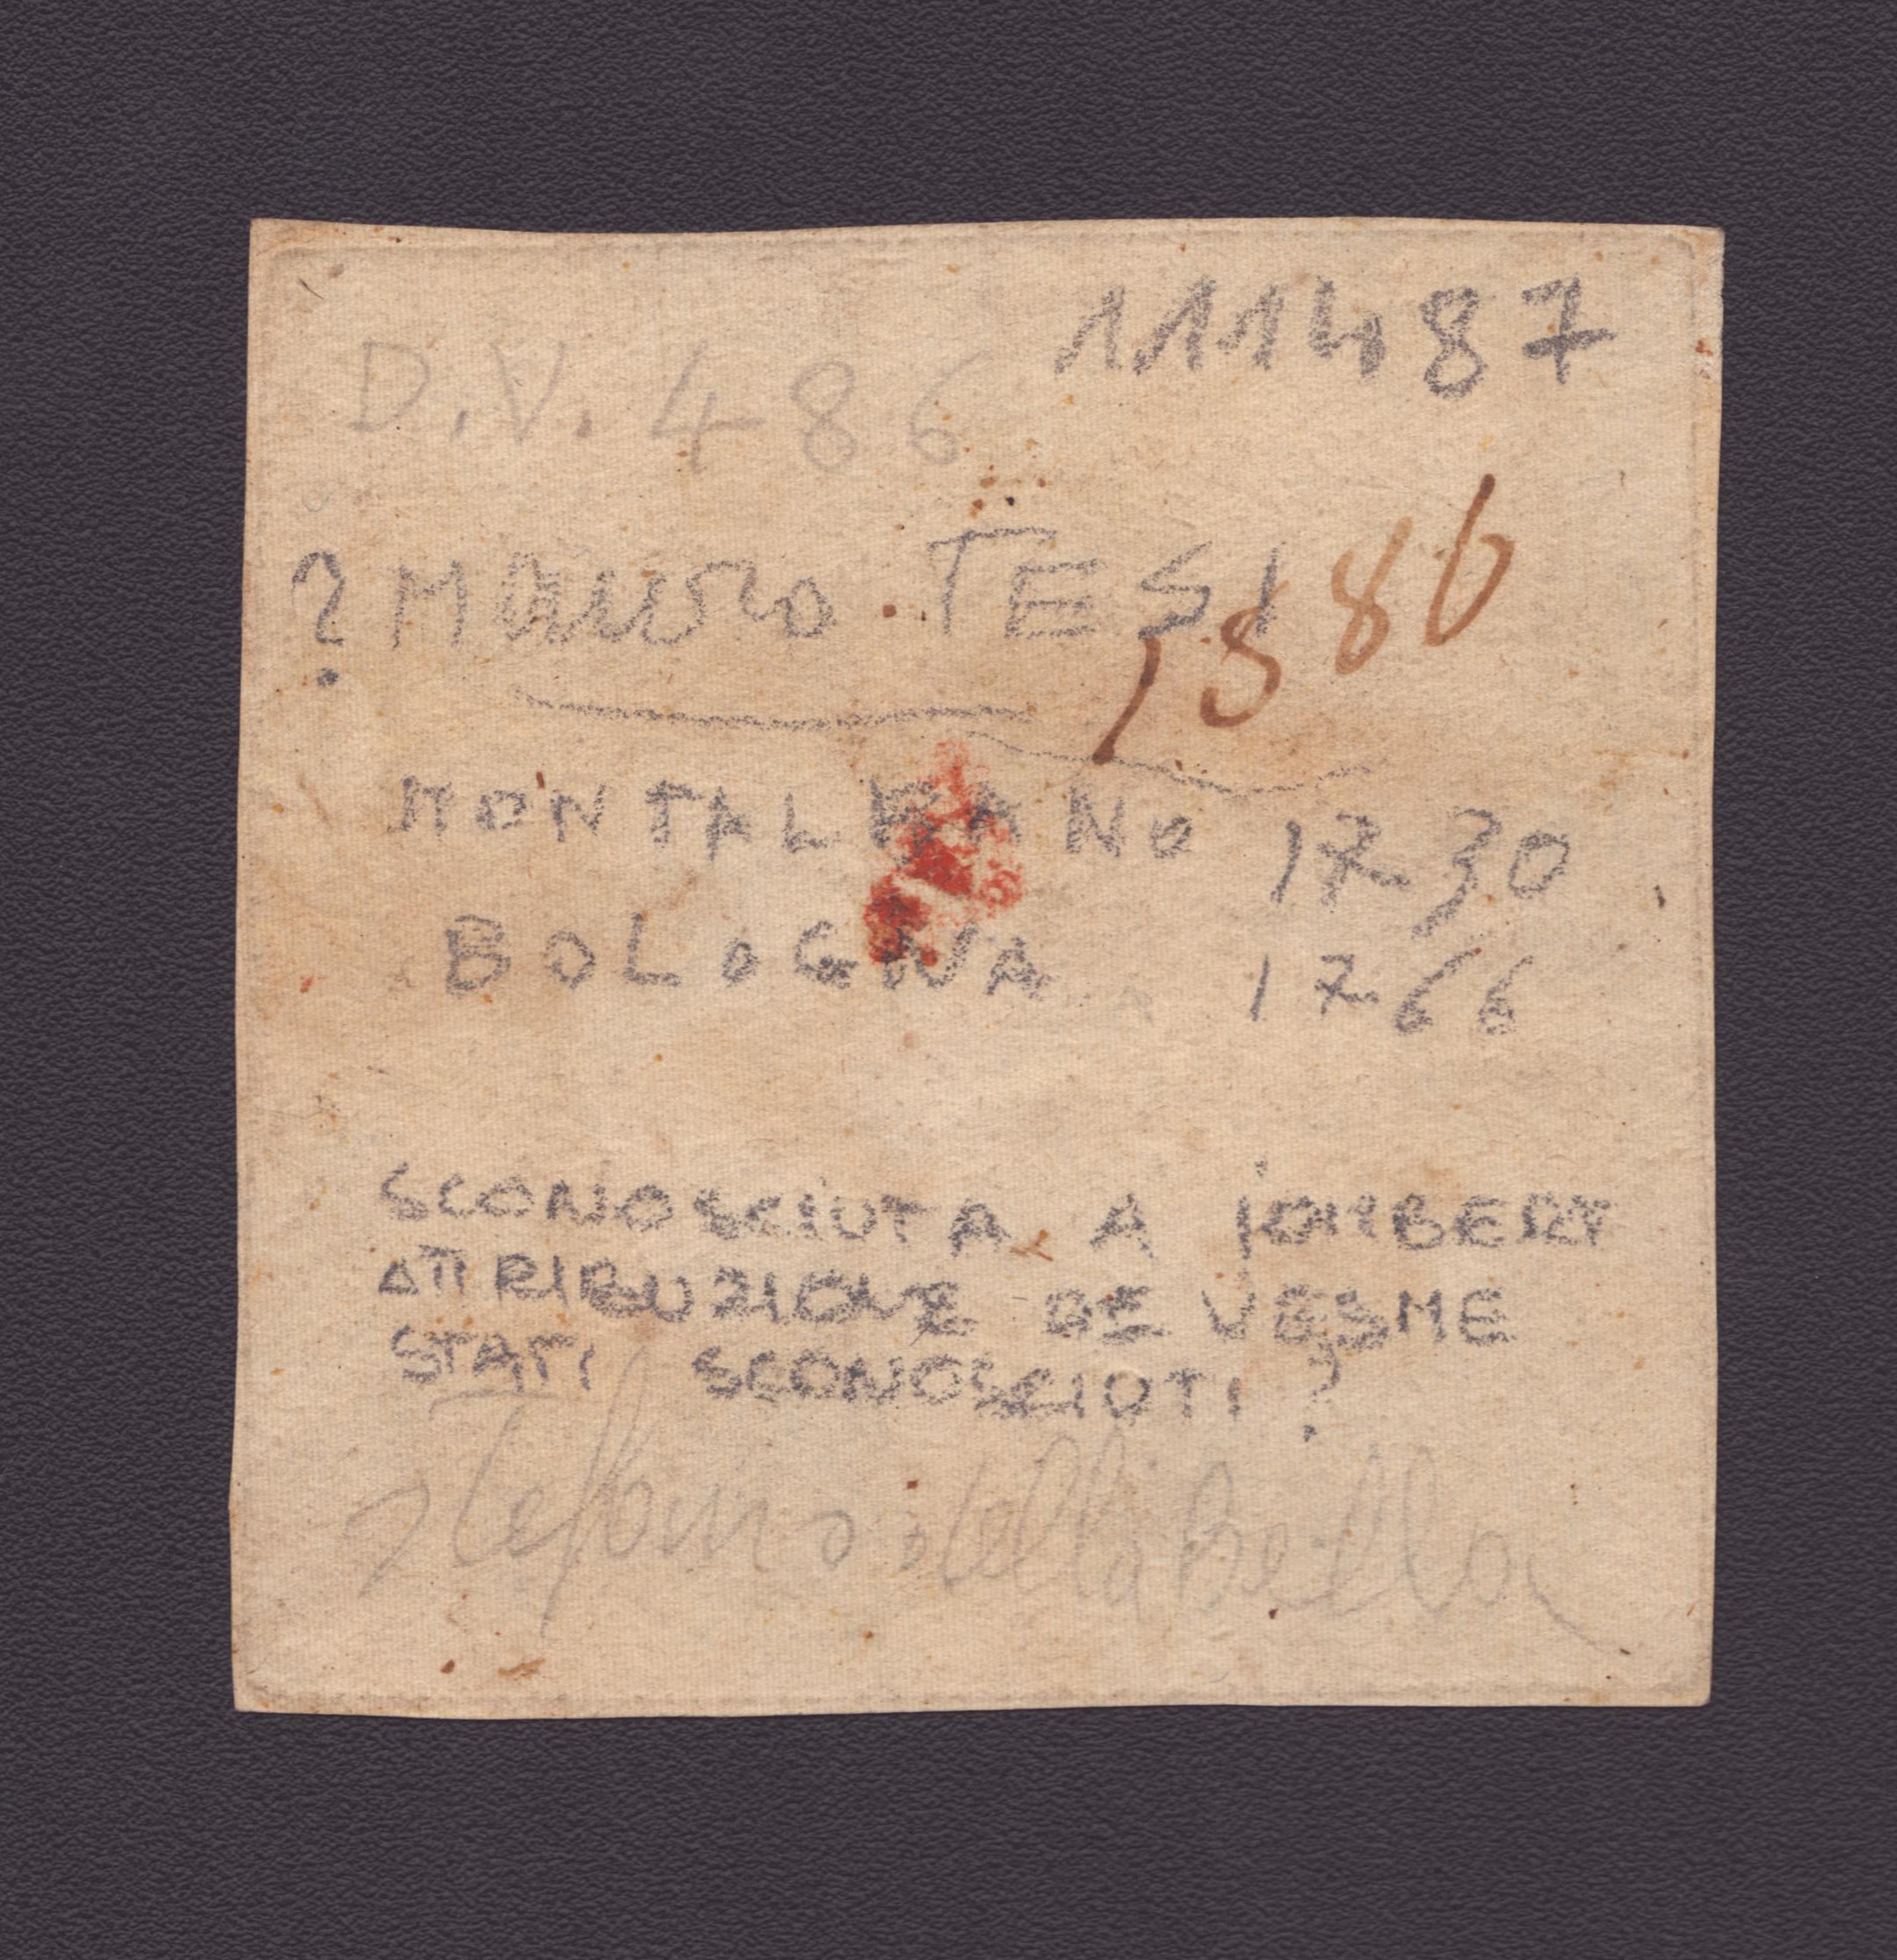 111487
D.V. 486
? Mauro TESI
1886
MONTALBANO 1730
BOLOGNA 1766
SCONOSCIUTA A JOMBERT
ATTRIBUZIONE DE VESME
STATI SCONOSCIUTI ?
Stefano della Bella